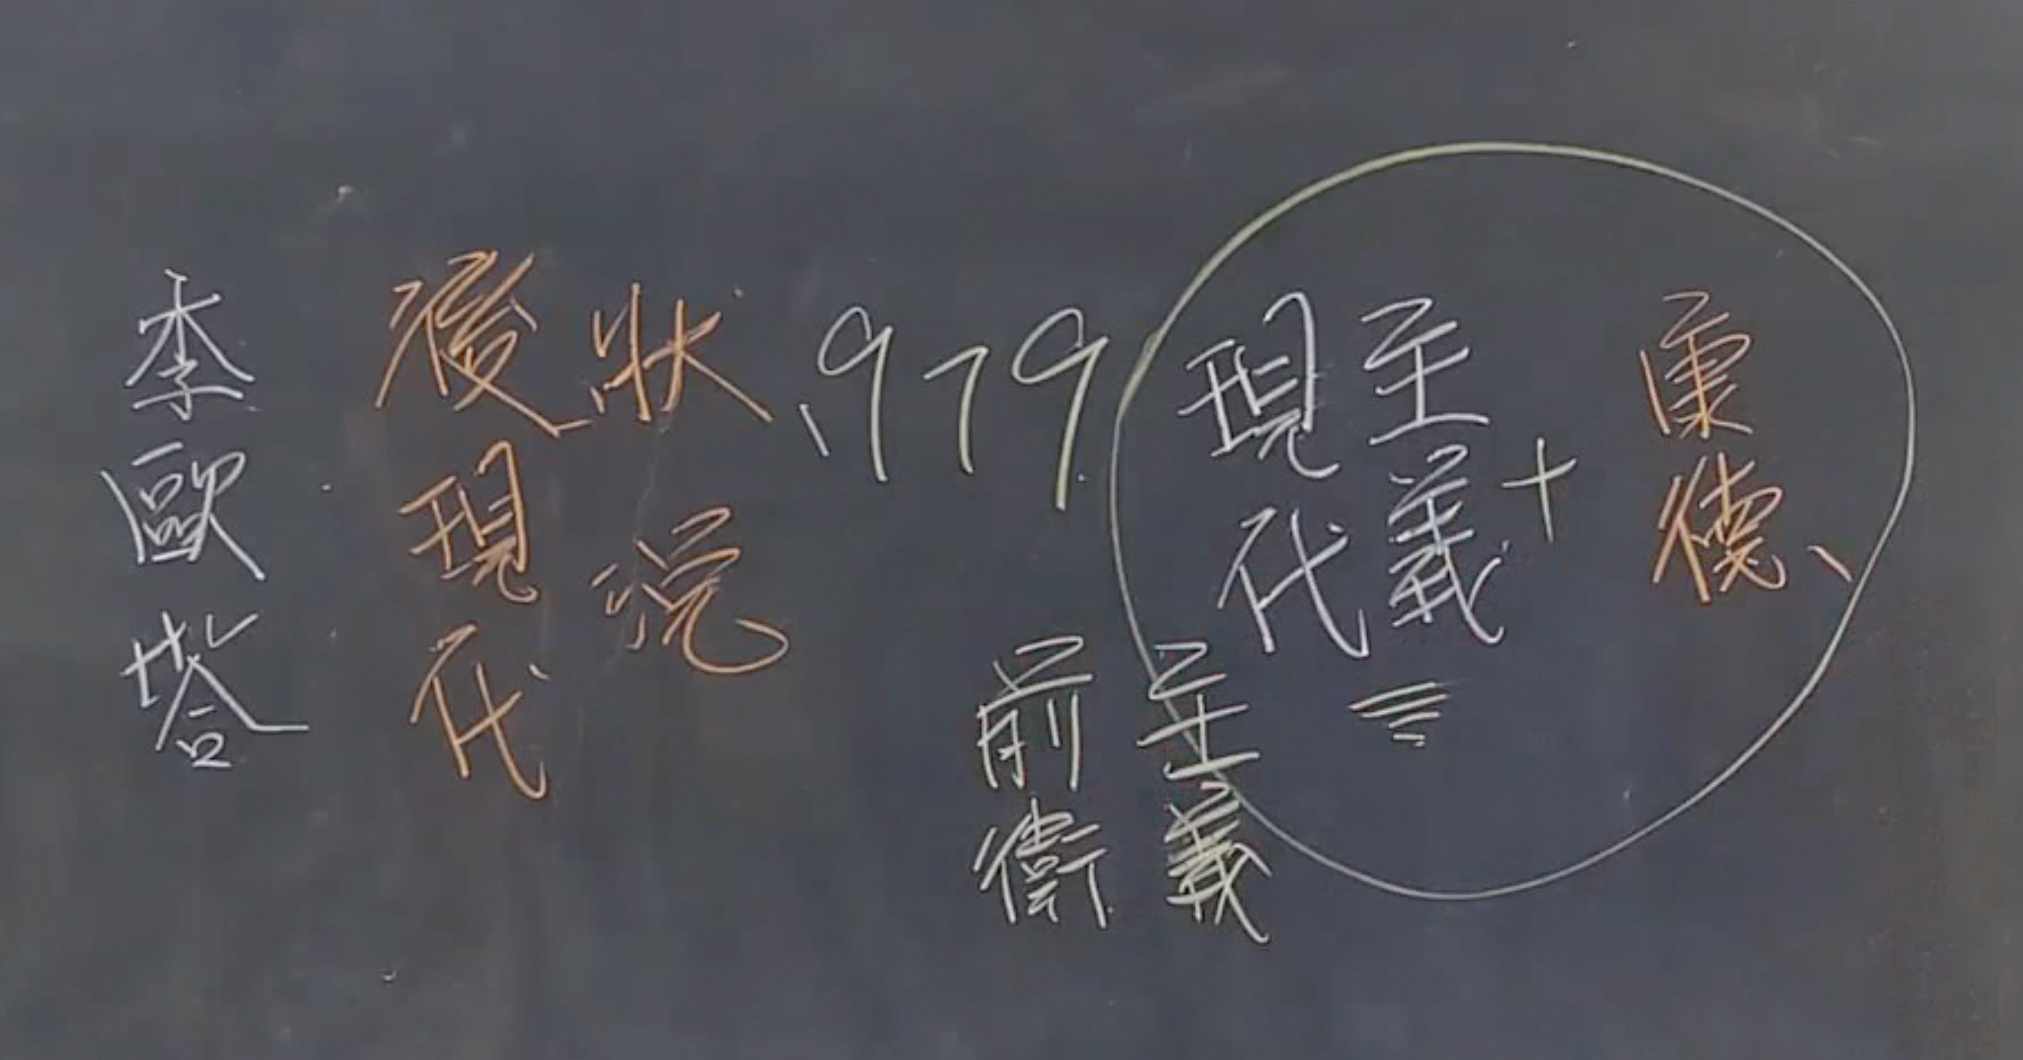 李歐塔
後現代
狀況
1979
現代
主義
+
康德、
前衛
主義